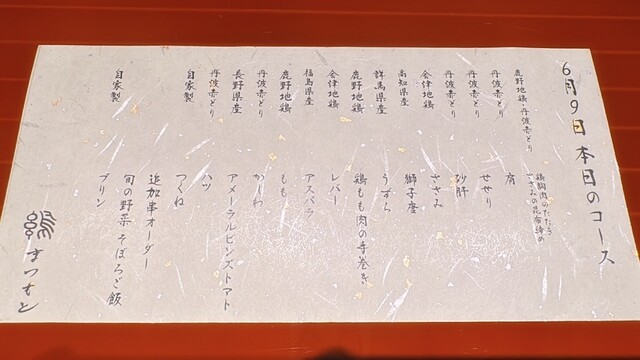 6月9日 本日のコース
鹿野地鶏・丹波赤どり 鶏胸肉のたたき
ささみの昆布締め
丹波赤どり 肩
丹波赤どり せせり
丹波赤どり 砂肝
会津地鶏 ささみ
高知県産 獅子唐
群馬県産 うずら
鹿野地鶏 鶏もも肉の手巻き
会津地鶏 レバー
福島県産 アスパラ
鹿野地鶏 もも
丹波赤どり かわ
長野県産 アメーラルビンズトマト
丹波赤どり ハツ
自家製 つくね
追加串オーダー
旬の野菜 そぼろご飯
自家製 プリン
まつもと